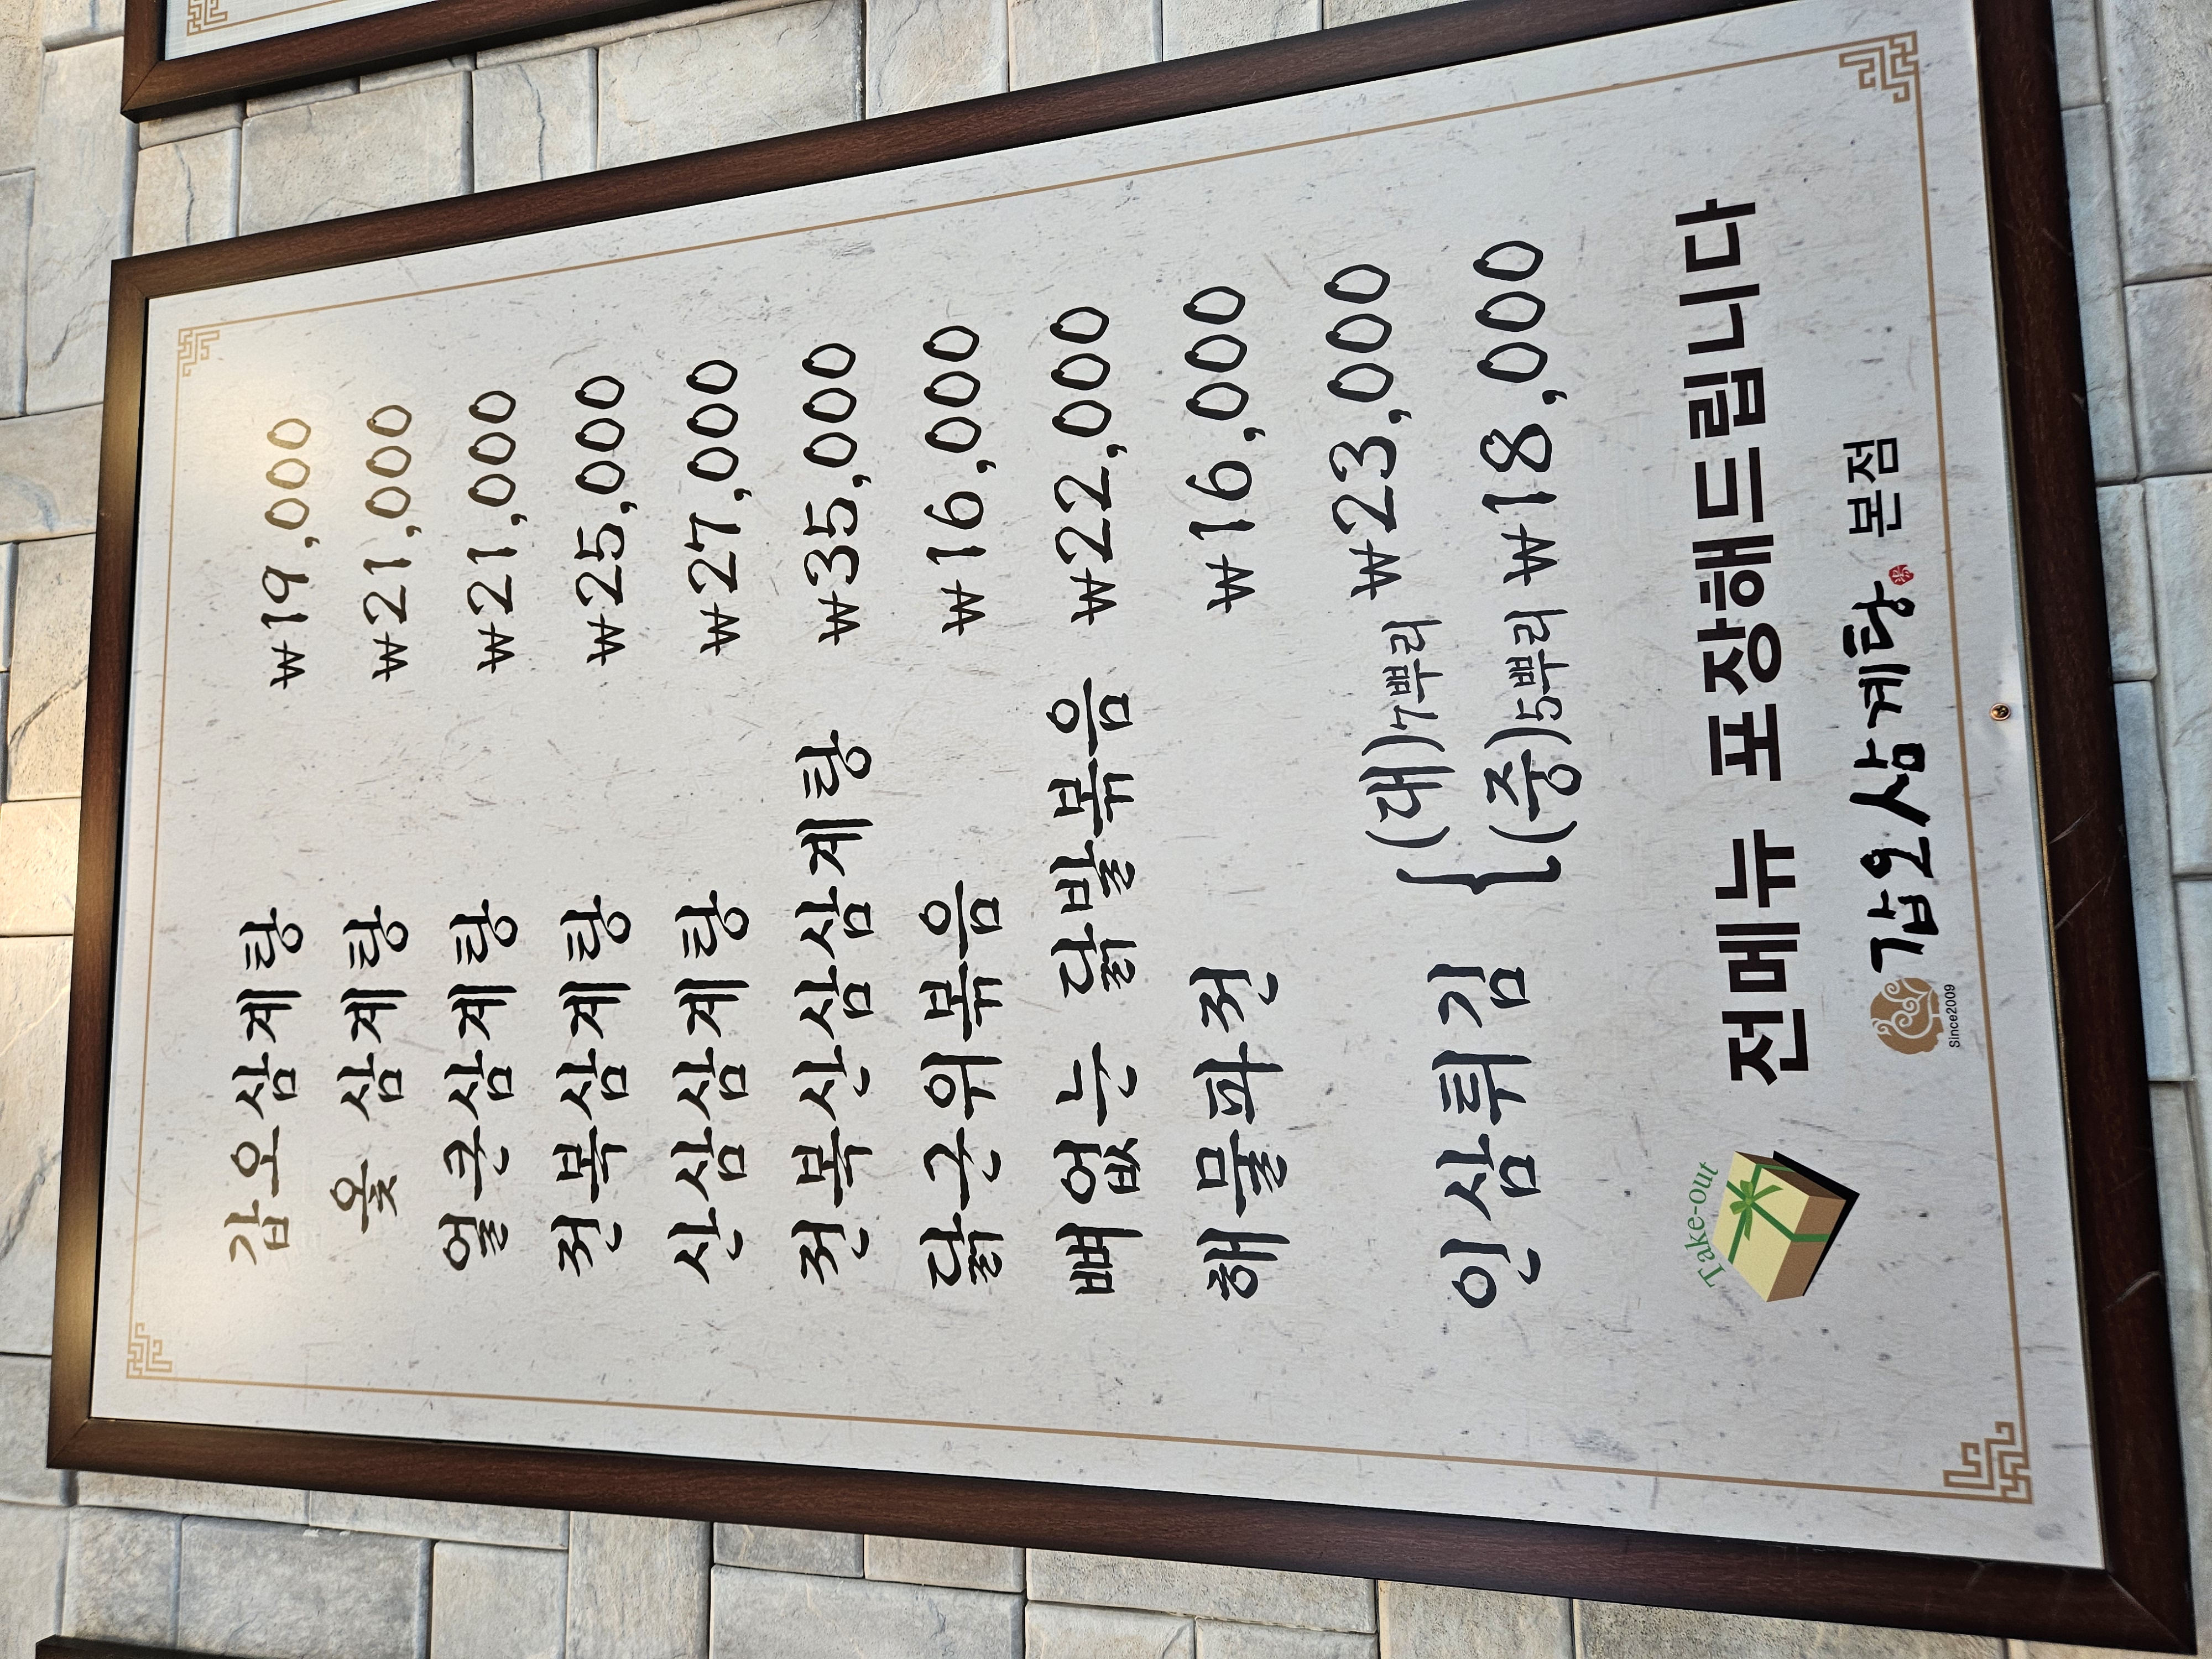 갑오삼계탕 ₩19,000
옻 삼계탕 ₩21,000
얼큰삼계탕 ₩21,000
전복삼계탕 ₩25,000
산삼삼계탕 ₩27,000
전복산삼삼계탕 ₩35,000
닭근위볶음 ₩16,000
뼈없는 닭발볶음 ₩22,000
해물파전 ₩16,000
인삼튀김 { (대)7뿌리 ₩23,000
(중)5뿌리 ₩18,000
Take-out 전메뉴 포장해드립니다
Since2009 갑오삼계탕 본점